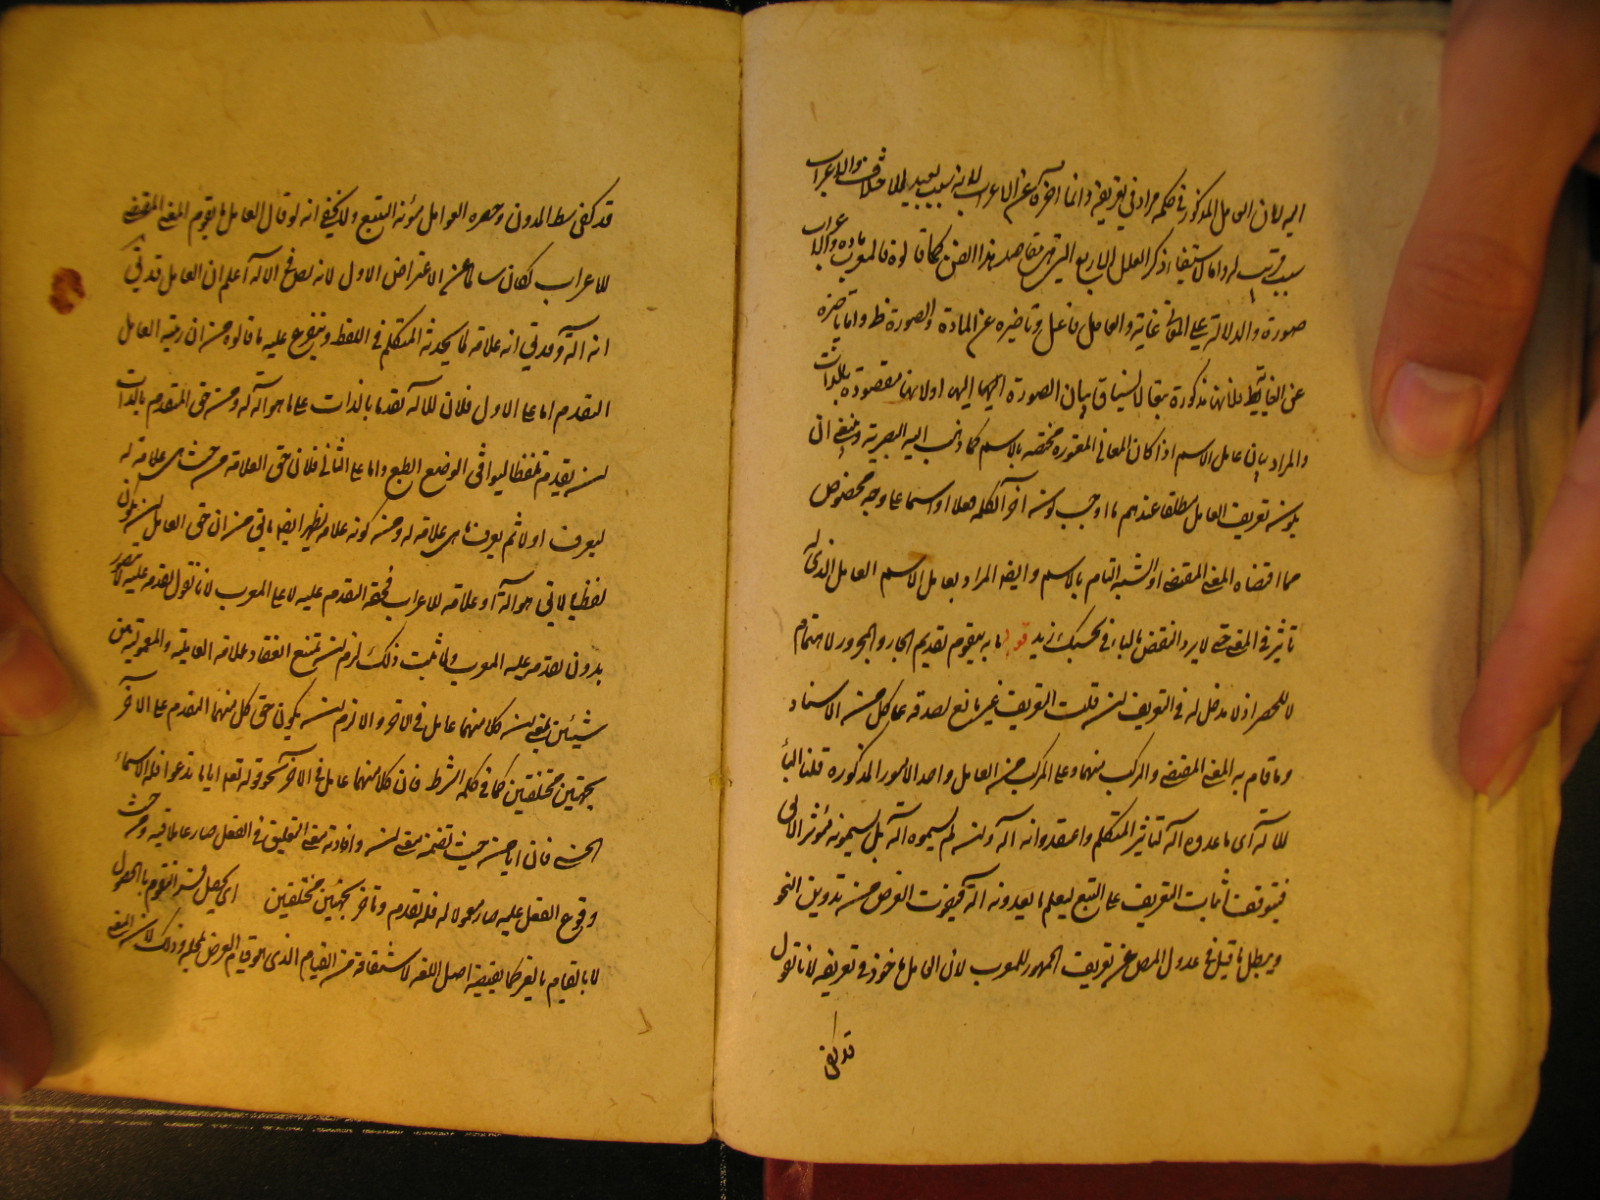 اليه لان العامل المذكور في حكمه مراد في تعريفه وانما اخره عن الاعراب لانه سبب بعيد للاختلاف والاعراب
سبب قريب له واما لاستيفاء ذكر العلل الاربع التي هي مقاصد هذا الفن كما قالوه فالمعرب مادة والاعراب
صورة والدلالة على المعاني غاية والعامل فاعل وتاخيره عن المادة والصورة ظ واما تاخيره
عن الغاية فلانها مذكورة تبعا لانسياق بيان الصورة اليها اولانها مقصودة بالذات
والمراد بيان عامل الاسم اذا كان المعاني المعتورة مختصة بالاسم كما ذهب اليه البصرية وينبغي ان
يكون تعريف العامل مطلقا عندهم ما اوجب كون اخر الكلمة فعلا او اسما على وجه مخصوص
مما اقتضاه المعنى المقتضي او الشبه التام بالاسم وايضا المراد بعامل الاسم العامل الذي له
تاثير في المعنى حتى لا يرد النقض بالباء في بحسبك زيد قوله ما به يتقوم تقديم الجار والمجرور للاهتمام
لا للحصر اذ لا مدخل له في التعريف فان قلت التعريف غير مانع لصدقه على كل من الاسناد
وما قام به المعنى المقتضي والمركب منهما وعلى المركب من العامل واحد الامور المذكورة قلنا الباء
للالة اي ما عدوه آلة لتاثير المتكلم واعتقدوا انه آلة وان لم يسموه آلة بل يسمونه مؤثرا لا يق
فيتوقف اثبات التعريف على التتبع ليعلم ما يعدونه آلة فيفوت الغرض من تدوين النحو
ويبطل ما قيل في عدول المص عن تعريف الجمهور للمعرب لان العامل ماخوذ في تعريفه لانا نقول
قد كفى
قد كفى سط المدون وحصره العوامل مؤنة التتبع ولا يخفى انه لو قال العامل ما يقوم المعنى المقتضي
للاعراب لكان سالما عن الاعتراض الاول لانه يصح الالة اعلم ان العامل قد يق
انه آلة وقد يق انه علامة لما يحدثه المتكلم في اللفظ ويتفرع عليه ما قالوه من ان رتبة العامل
التقدم اما على الاول فلان للالة تقدما بالذات على ما هو آلة له ومن حق المتقدم بالذات
ان يقدم لفظا ليوافق الوضع الطبع واما على الثاني فلان حق العلامة من حيث هي علامة ان
ليعرف اولا ثم يعرف ما هي علامة له ومن كونه علامة يظهر ايضا ما يق من ان حق العامل ان يكون
لفظيا لا يق هو آلة او علامة للاعراب فحقه التقدم عليه لا على المعرب لانا نقول تقدمه عليه لا يتصور
بدون تقدمه على المعرب ولما ثبت ذلك لزم ان يمتنع انعقاد علاقة العاملية والمعمولية بين
شيئين بمعنى ان كلا منهما عامل في الاخر والا لزم ان يكون حق كل منهما التقدم على الآخر
بجهتين مختلفتين كما في كلم الشرط فان كلا منهما عامل في الاخر نحو قوله تعه ايا ما تدعوا فله الاسماء
الحسنى فان ايا من حيث تضمنه معنى ان وافادته معنى التعليق في الفعل صار عاملا فيه ومن حيث
وقوع الفعل عليه صار معمولا له فله تقدم وتاخر بجهتين مختلفتين اي يحصل فسر التقوم بالحصول
لا بالقيام بالغير كما يقتضيه اصل اللغة لاشتقاقه من القيام الذي هو قيام العرض بمحله وذلك لان المعنى